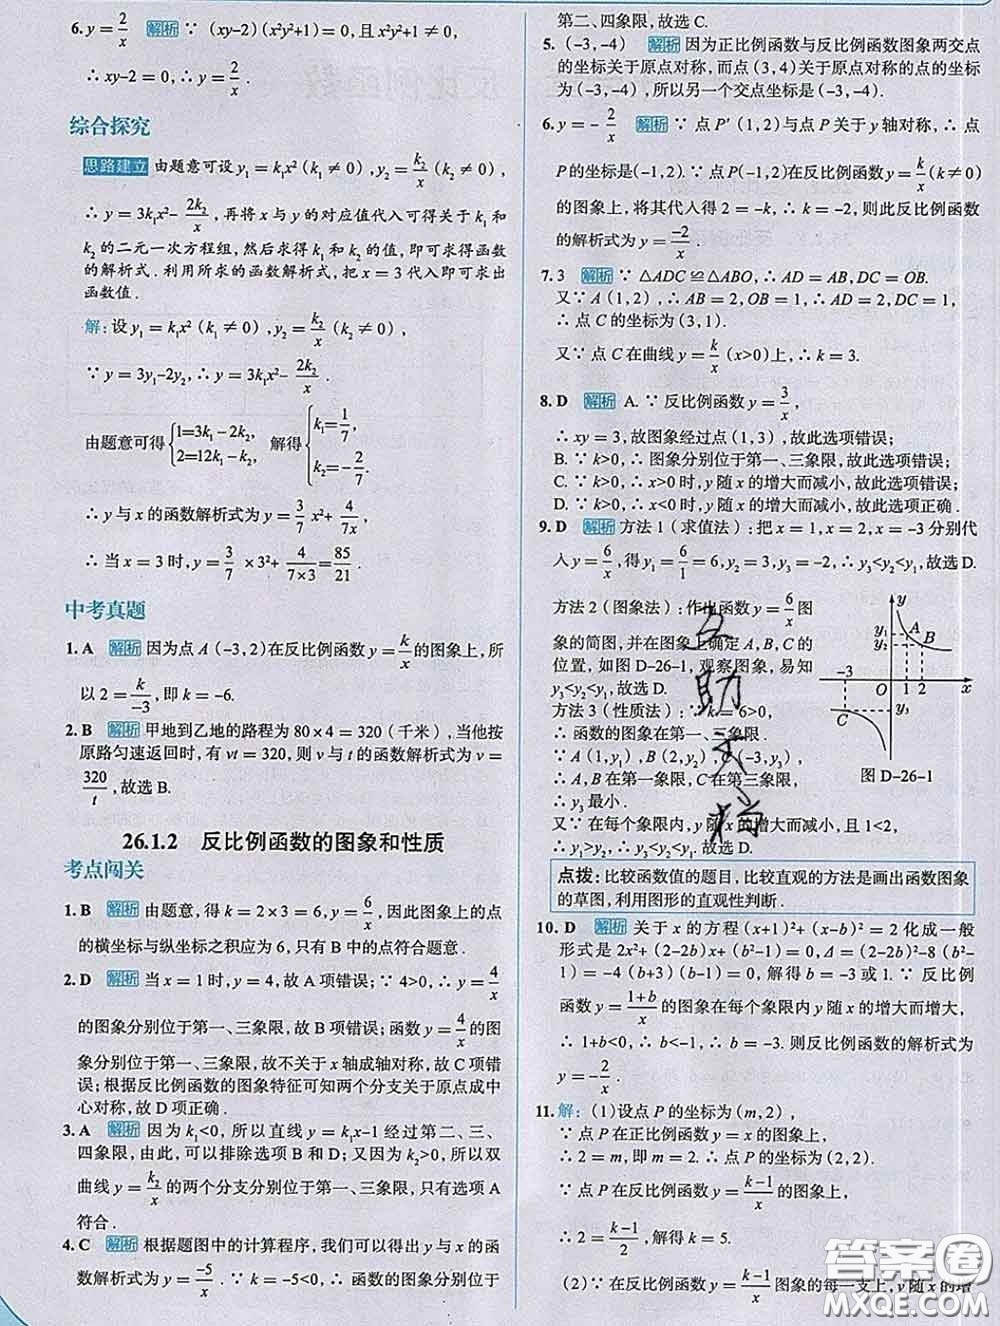 6. y=2/x 解析 ∵ (xy-2)(x²y²+1)=0,且x²y²+1≠0,
∴ xy-2=0,∴ y=2/x.
综合探究
思路建立 由题意可设 y₁=k₁x²(k₁≠0),y₂=k₂/x(k₂≠0),
∴ y=3k₁x²-2k₂/x,再将x与y的对应值代入可得关于k₁和
k₂的二元一次方程组,然后求得k₁和k₂的值,即可求得函数
的解析式.利用所求的函数解析式,把x=3代入即可求出
函数值.
解:设 y₁=k₁x²(k₁≠0),y₂=k₂/x(k₂≠0),
∵ y=3y₁-2y₂,∴ y=3k₁x²-2k₂/x.
由题意可得{1=3k₁-2k₂, 2=12k₁-k₂, 解得{k₁=1/7, k₂=-2/7.
∴ y与x的函数解析式为 y=3/7 x²+4/7x.
∴ 当x=3时,y=3/7×3²+4/(7×3)=85/21.
中考真题
1. A 解析 因为点A(-3,2)在反比例函数y=k/x的图象上,所
以2=k/-3,即k=-6.
2. B 解析 甲地到乙地的路程为80×4=320(千米),当他按
原路匀速返回时,有vt=320,则v与t的函数解析式为v=
320/t,故选B.
26.1.2 反比例函数的图象和性质
考点闯关
1. B 解析 由题意,得k=2×3=6,y=6/x,因此图象上的点
的横坐标与纵坐标之积应为6,只有B中的点符合题意.
2. D 解析 当x=1时,y=4,故A项错误;∵ 4>0,∴ y=4/x
的图象分别位于第一、三象限,故B项错误;函数y=4/x的图
象分别位于第一、三象限,故不关于x轴成轴对称,故C项错
误;根据反比例函数的图象特征可知两个分支关于原点成中
心对称,故D项正确.
3. A 解析 因为k₁<0,所以直线y=k₁x-1经过第二、三、
四象限,由此,可以排除选项B和D;又因为k₂>0,所以双
曲线y=k₂/x的两个分支分别位于第一、三象限,只有选项A
符合.
4. C 解析 根据题图中的计算程序,我们可以得出y与x的函
数解析式为y=-5/x.∵ k=-5<0,∴ 函数的图象分别位于
第二、四象限,故选C.
5. (-3,-4) 解析 因为正比例函数与反比例函数图象两交点
的坐标关于原点对称,而点(3,4)关于原点对称的点的坐标
为(-3,-4),所以另一个交点坐标是(-3,-4).
6. y=-2/x 解析 ∵ 点P′(1,2)与点P关于y轴对称,∴ 点
P的坐标是(-1,2).∵ 点P(-1,2)在反比例函数y=k/x(k≠0)
的图象上,将其代入得2=-k,∴ k=-2,则此反比例函数
的解析式为y=-2/x.
7. 3 解析 ∵ △ADC≌△ABO,∴ AD=AB,DC=OB.
又∵ A(1,2),∴ AB=2,OB=1,∴ AD=2,DC=1,
∴ 点C的坐标为(3,1).
又∵ 点C在曲线y=k/x(x>0)上,∴ k=3.
8. D 解析 A.∵ 反比例函数y=3/x,
∴ xy=3,故图象经过点(1,3),故此选项错误;
B.∵ k>0,∴ 图象分别位于第一、三象限,故此选项错误;
C.∵ k>0,∴ x>0时,y随x的增大而减小,故此选项错误;
D.∵ k>0,∴ x<0时,y随x的增大而减小,故此选项正确.
9. D 解析 方法1(求值法):把x=1,x=2,x=-3分别代
入y=6/x,得y₁=6/1=6,y₂=3,y₃=-2,∴ y₃<y₂<y₁,故选D.
方法2(图象法):作出函数y=6/x图
象的简图,并在图象上确定A,B,C的
位置,如图D-26-1,观察图象,易知
y₃<y₂<y₁,故选D.
方法3(性质法):∵ k=6>0,
∴ 函数的图象在第一、三象限.
∵ A(1,y₁),B(2,y₂),C(-3,y₃),
∴ A,B在第一象限,C在第三象限,
∴ y₃最小.
又∵ 在每个象限内,y随x的增大而减小,且1<2,
∴ y₁>y₂,∴ y₁>y₂>y₃.故选D.
y
y₁
y₂
A
B
-3
O
1
2
x
C
y₃
图D-26-1
点拨:比较函数值的题目,比较直观的方法是画出函数图象
的草图,利用图形的直观性判断.
10. D 解析 关于x的方程(x+1)²+(x-b)²=2化成一般
形式是2x²+(2-2b)x+(b²-1)=0,Δ=(2-2b)²-8(b²-
1)=-4(b+3)(b-1)=0,解得b=-3或1.∵ 反比例
函数y=(1+b)/x的图象在每个象限内y随x的增大而增大,
∴ 1+b<0,∴ b<-1,∴ b=-3.则反比例函数的解析式为
y=-2/x.
11. 解:(1)设点P的坐标为(m,2),
∵ 点P在正比例函数y=x的图象上,
∴ 2=m,即m=2.∴ 点P的坐标为(2,2).
∵ 点P在反比例函数y=(k-1)/x的图象上,
∴ 2=(k-1)/2,解得k=5.
(2)∵ 在反比例函数y=(k-1)/x图象的每一支上,y随x的增
互助文档
答案圈
MXQE.COM